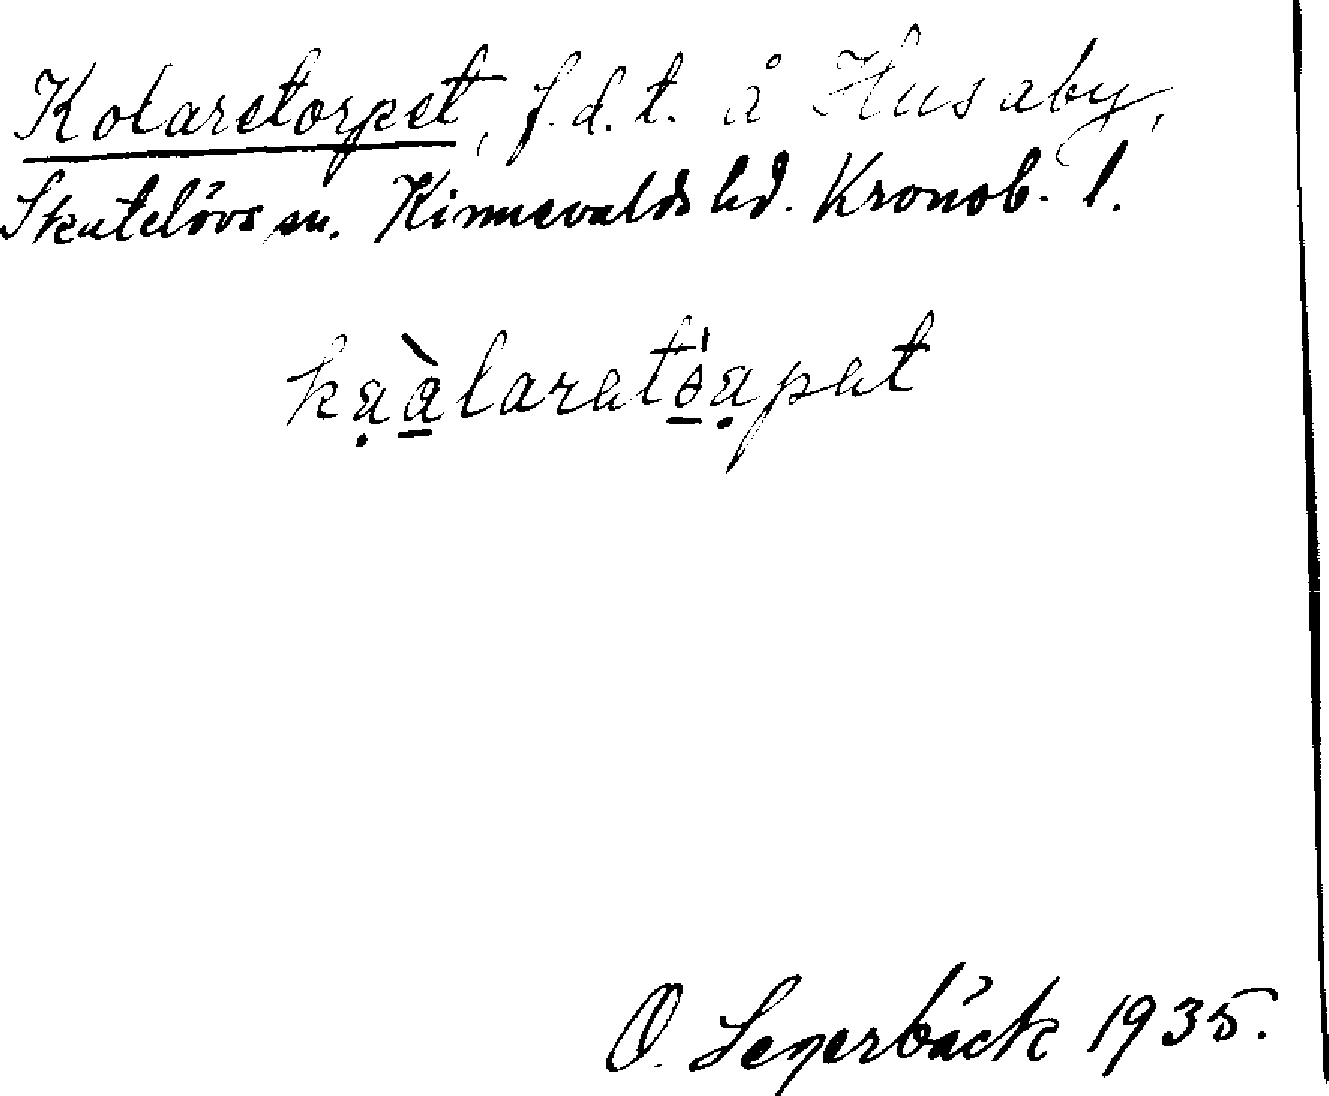 Kolaretorpet, f.d.t. å Husaby,
Skatelövs sn. Kinnevalds hd. Kronob. l.
kạà̱laretó̱ạpet
O. Segerbäck 1935.